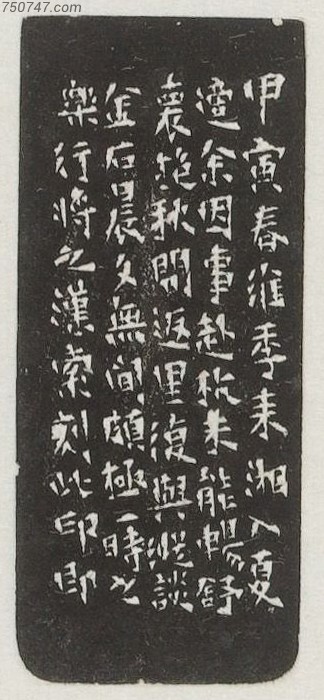 750747.com
甲寅春維季来湘入夏
適余因事赴秋未能暢舒
裹抱秋間返里復與縱談
金石晨夕無間頗極一時之
樂行將之漢索刻此印即